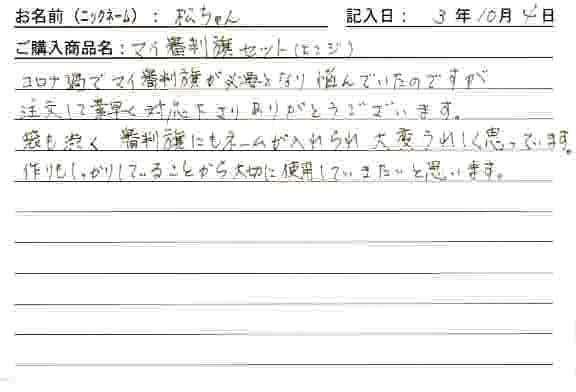 お名前（ニックネーム）：松ちゃん 記入日：3年10月4日
ご購入商品名：マイ審判旗セット（エンジ）
コロナ禍でマイ審判旗が必要となり悩んでいたのですが
注文して素早く対応下さりありがとうございます。
袋も渋く 審判旗にもネームが入れられ 大変うれしく思っています。
作りもしっかりしていることから大切に使用していきたいと思います。